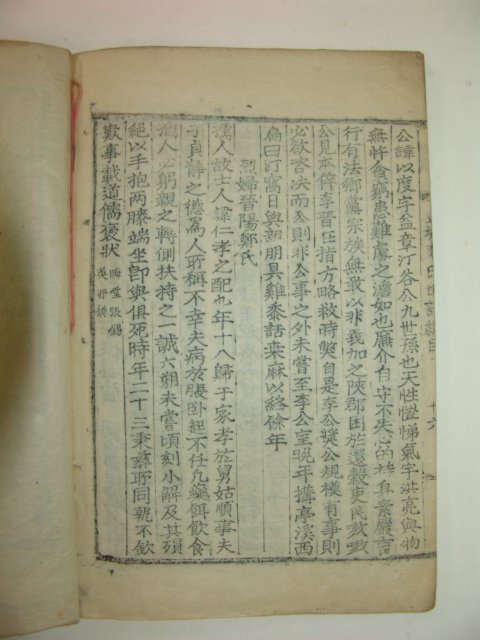 公諱以度字益章汀谷公九世孫也天性愷悌氣宇洪亮與物
無忤貧窮患難處之澹如也廉介自守不失心的持身素嚴言
行有法鄕黨宗族無敢以非義加之陜郡困於還穀吏民嗷嗷
公見本倅李晋在指方略救時弊自是李公獎公規模有事則
必欲咨决而公則非公事之外未嘗至李公室晩年搆亭溪西
扁曰汀窩日與親朋具雞黍話桒麻以終餘年
烈婦晉陽鄭氏
孺人故士人諱仁孝之配也年十八歸于家孝於舅姑順事夫
子貞靜之德爲人所稱不幸夫病於脹卧起不任凡藥餌飮食
孺人必躬親之轉側扶持之一誠六朔未嘗頃刻小解及其殞
絶以手抱兩膝端坐卽與俱死時年二十三秉彛所同孰不欽
歎事載道儒褒狀
晦堂張錫
英所撰